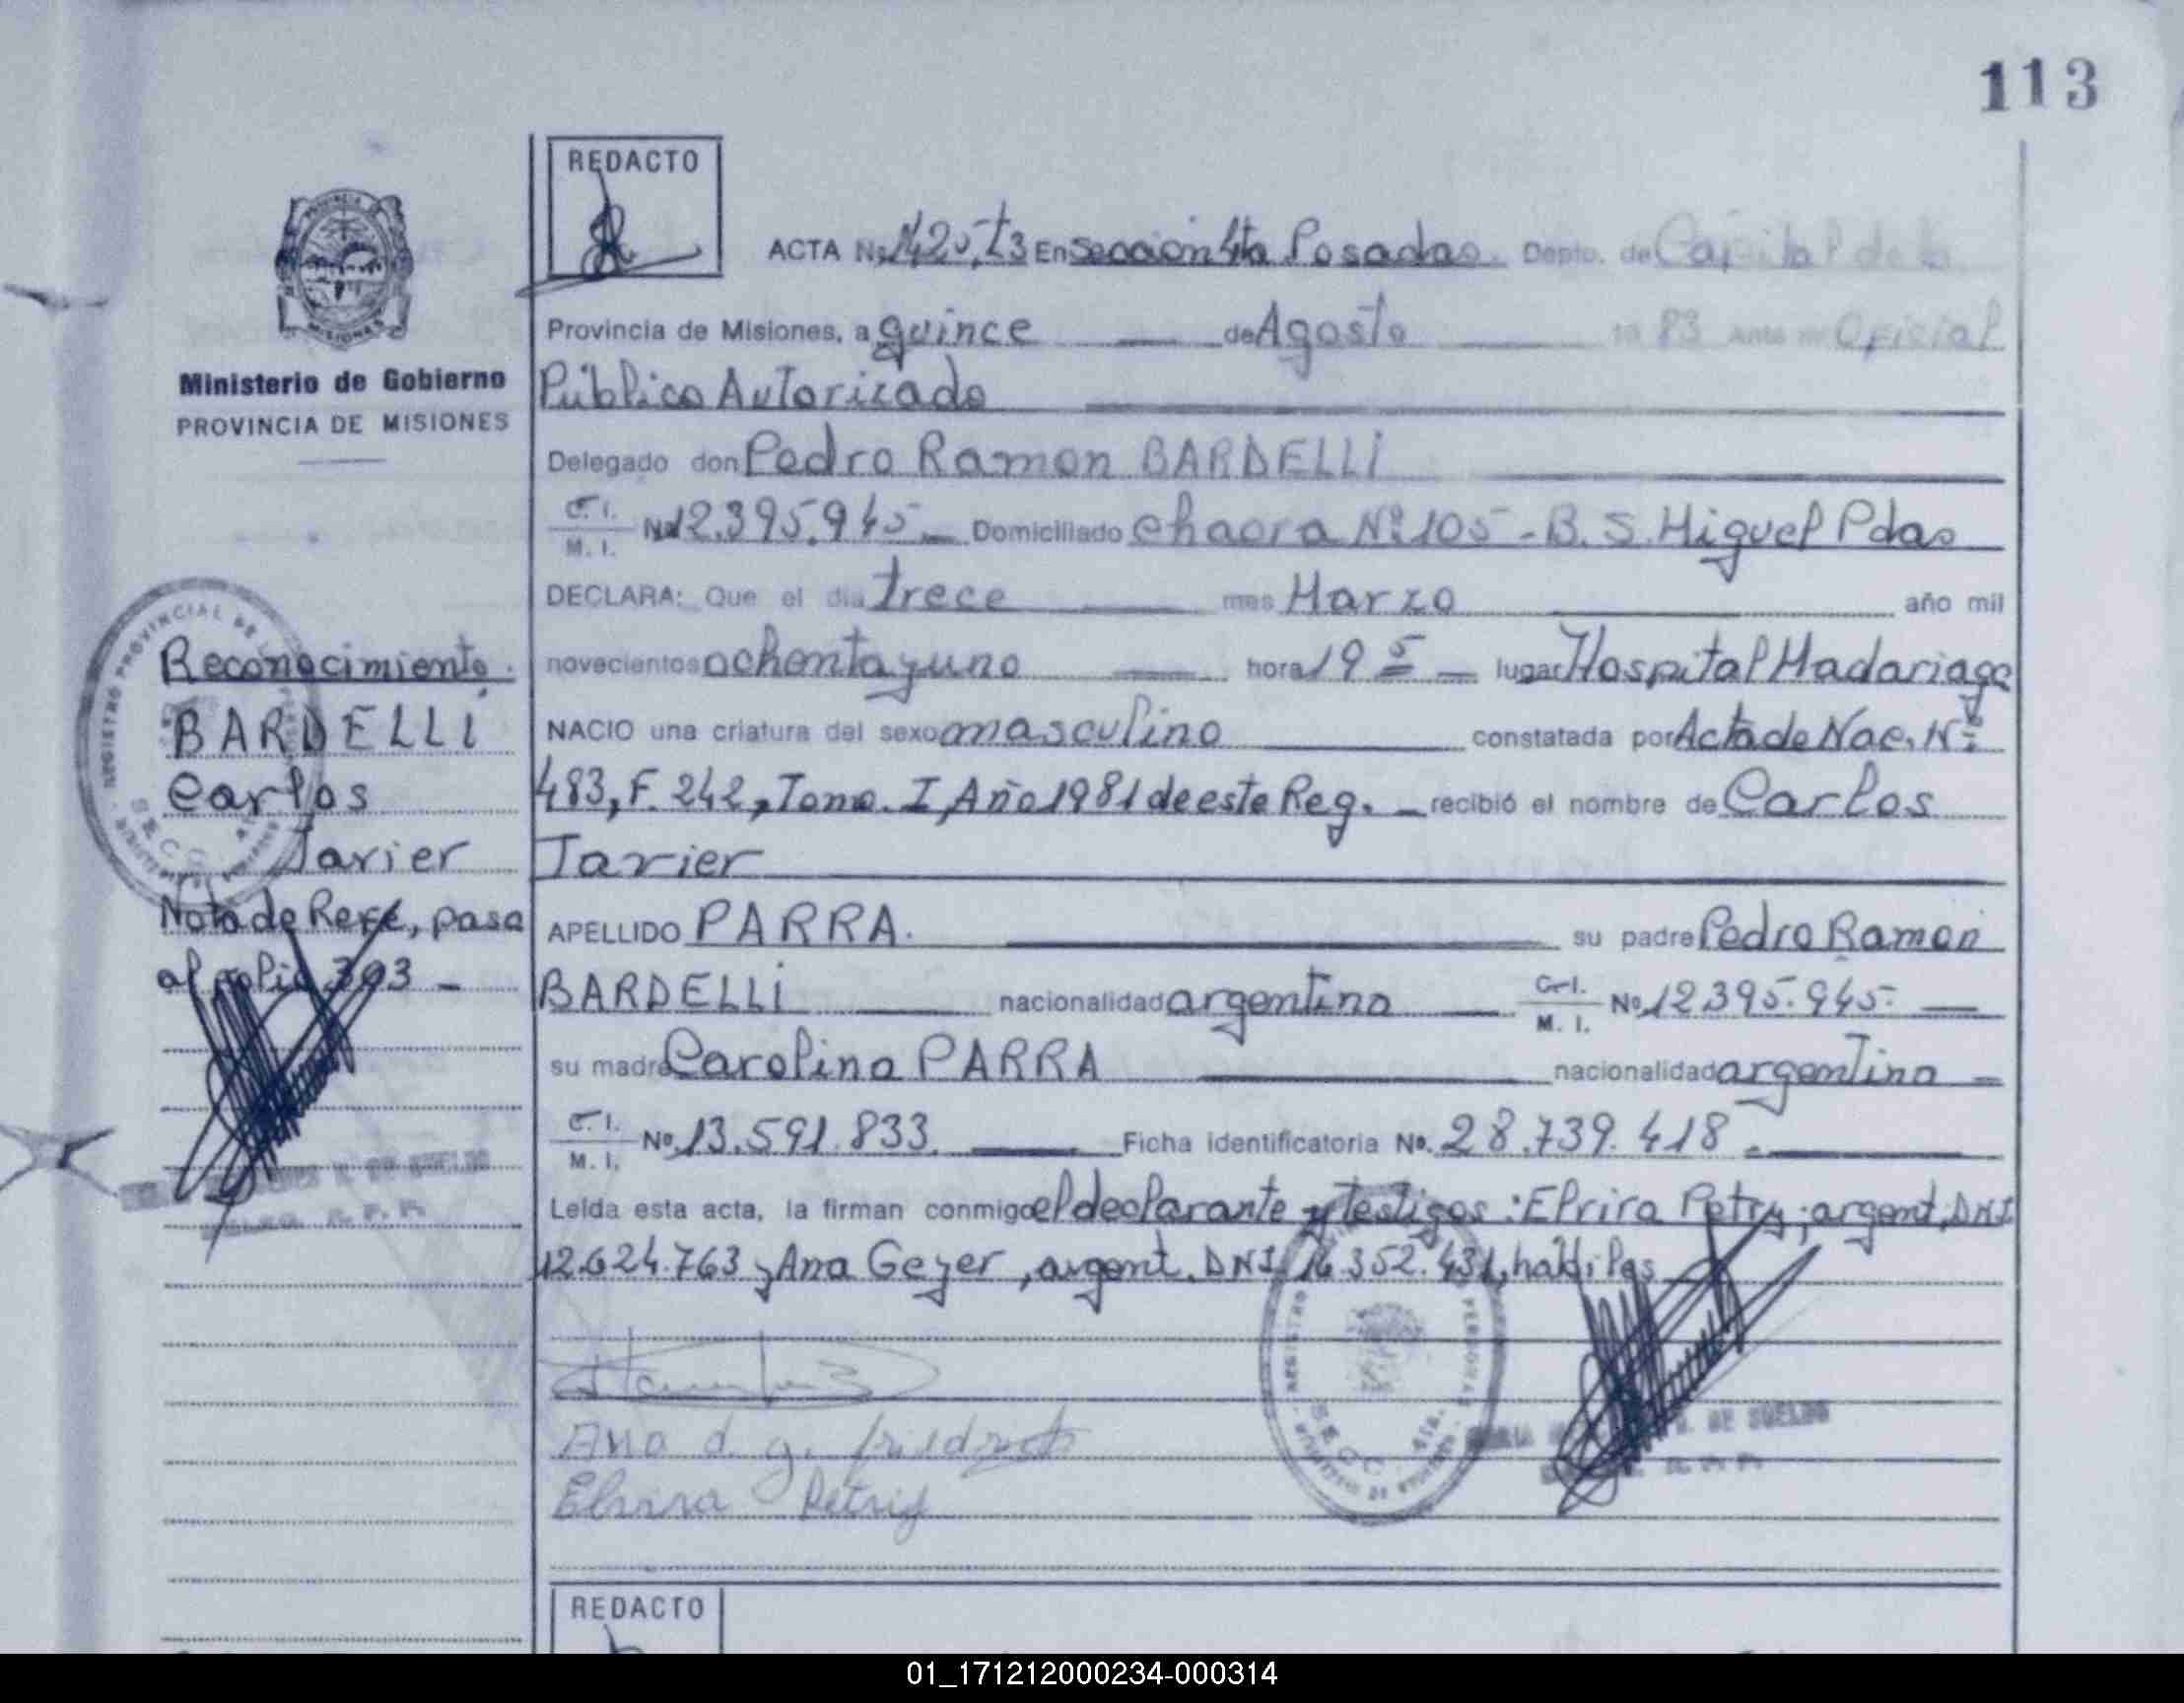 113
REDACTO
ACTA No 1420, T3 En Sección 4ta Posadas. Depto. de Capital de la
Provincia de Misiones, a quince de Agosto 19 83 Ante mi Oficial
Público Autorizado
Delegado don Pedro Ramon BARDELLI
C. I. M. I. No 12.395.945 Domiciliado Chacra Nº 105 - B. S. Miguel Pdas
DECLARA: Que el dia trece mes Marzo año mil
novecientos ochenta y uno hora 19 5 lugar Hospital Madariaga
NACIO una criatura del sexo masculino constatada por Acta de Nac. Nº
483, F. 242, Tomo. I, Año 1981 de este Reg. recibió el nombre de Carlos
Javier
APELLIDO PARRA. su padre Pedro Ramon
BARDELLI nacionalidad argentina C. I. M. I. No 12.395.945.
su madre Carolina PARRA nacionalidad argentina
C. I. M. I. No. 13.591.833. Ficha identificatoria No. 28.739.418.
Leída esta acta, la firman conmigo el declarante y testigos: Elvira Petry; argent, DNI
12.624.763 y Ana Geyer, argent. DNI. 16.352.431, habiles
Ana d. g.
Elvira Petrig
DE SUELDO
REDACTO
PROVINCIA DE MISIONES
Ministerio de Gobierno
PROVINCIA DE MISIONES
Reconocimiento.
BARDELLI
Carlos
Javier
Nota de Refe, pasa
al folio 303
01_171212000234-000314